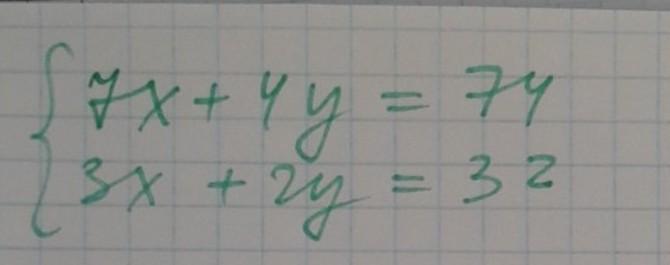 7x + 4y = 74
3x + 2y = 32